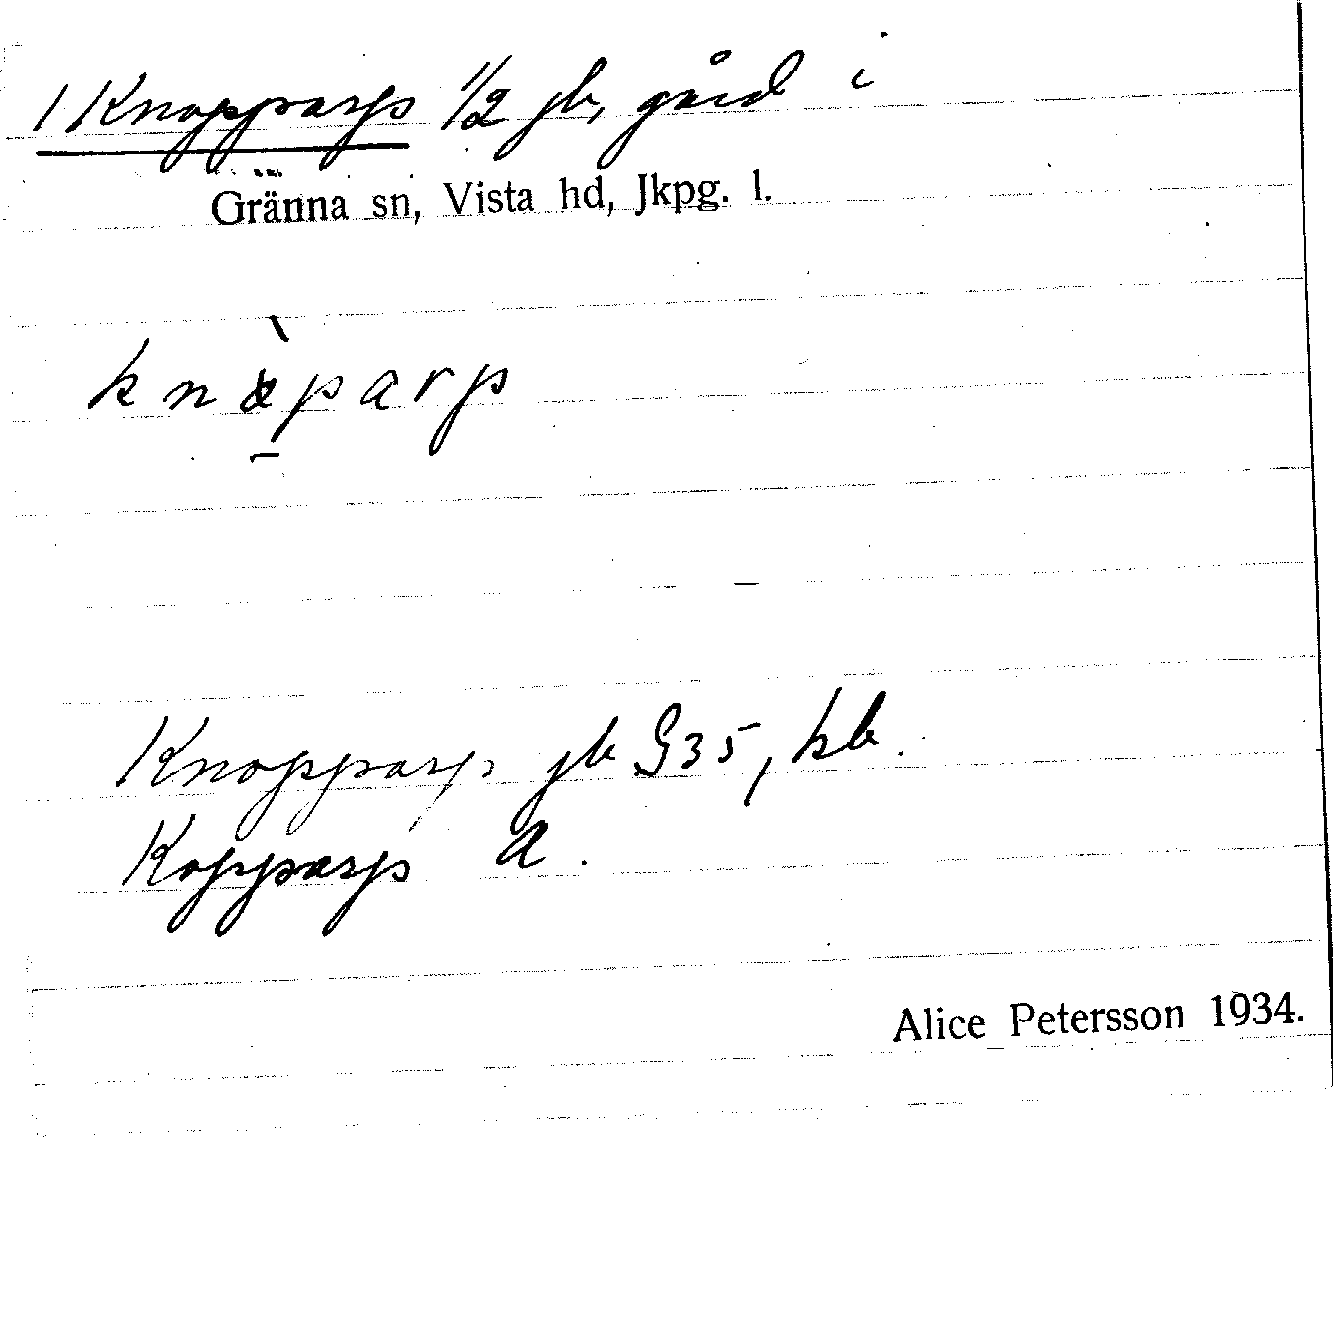 1 Knopparp 1/2 jb, gård i
Gränna sn, Vista hd, Jkpg. l.
knàparp
Knopparp jb §35, kb.
Kopparp a.
Alice Petersson 1934.